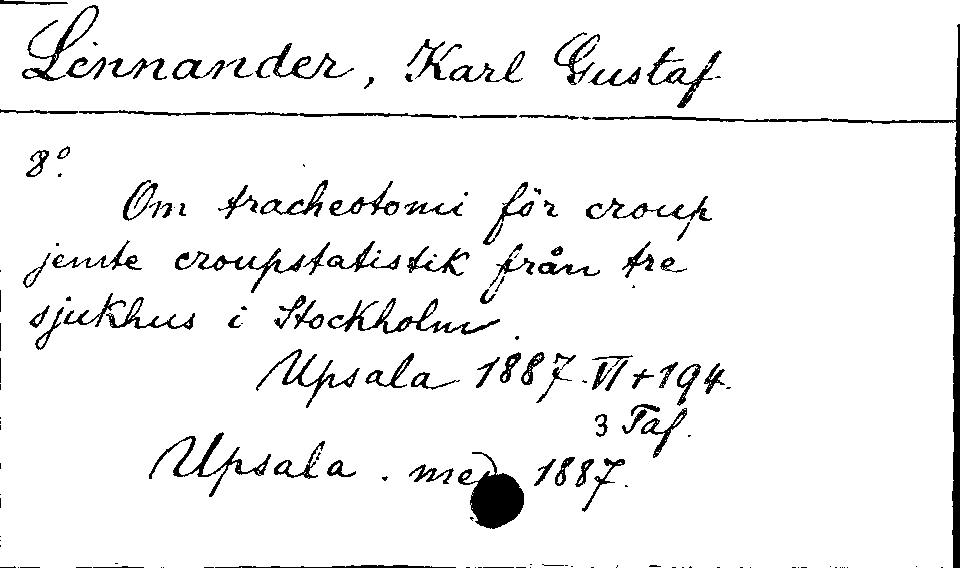 Linnander, Karl Gustaf
8°.
Om tracheotomi för croup
jemte croupstatistik från tre
sjukhus i Stockholm.
Upsala 1887. VI + 194.
3 Taf.
Upsala. med 1887.